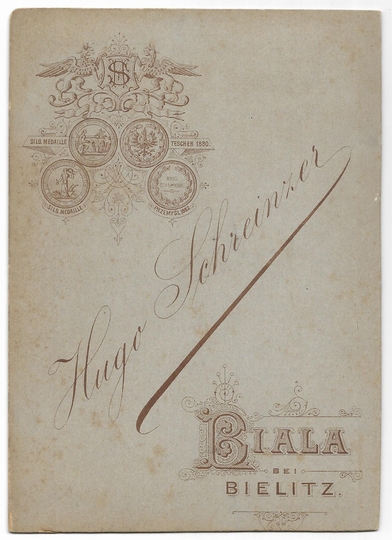 HS
SILB. MEDAILLE
TESCHEN 1880.
SILB. MEDAILLE
PRZEMYSL 1882.
Hugo Schreinzer
BIALA
BEI
BIELITZ.